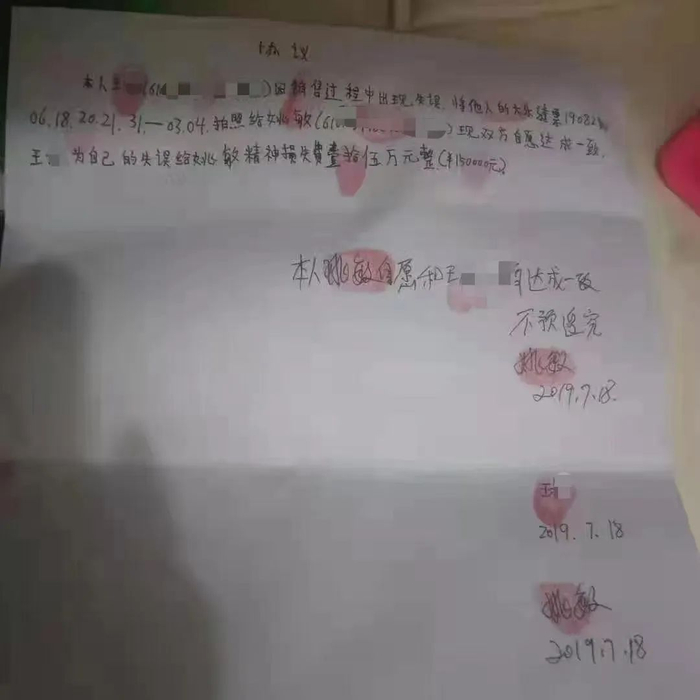 协议
本人王 (610 )因销售过程中出现失误,将他人的大乐透票19082期
06.18.20.21.31.—03.04.拍照给姚敏(610 )现双方自愿达成一致,
王 为自己的失误给姚敏精神损失费壹拾伍万元整(¥150000元)
本人姚敏自愿和王 达成一致
不预追究
姚敏
2019.7.18.
王
2019.7.18
姚敏
2019.7.18